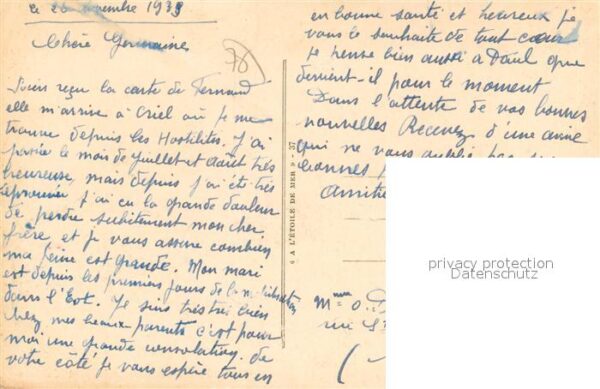 le 26 Novembre 1939
Chère Germaine
reçu la carte de Fernand
elle m'arrive à Criel où je me
trouve depuis les Hostilités. J'ai
passée le mois de juillet et août très
heureuse, mais depuis j'ai été très
éprouvée j'ai eu la grande douleur
de perdre subitement mon cher
frère et je vous assure combien
ma peine est grande. Mon mari
est depuis les premiers jours de la mobilisation
dans l'Est. Je suis très très bien
chez mes beaux parents c'est pour
moi une grande consolation. de
votre côté je vous espère tous en
en bonne santé et heureux je
vous le souhaite de tout cœur
je pense bien aussi à Paul que
devient-il pour le moment
Dans l'attente de vos bonnes
nouvelles Recevez d'une amie
qui ne vous oublie pas
bonnes
4 A L'ÉTOILE DE MER - 37
Mme O.
privacy protection
Datenschutz